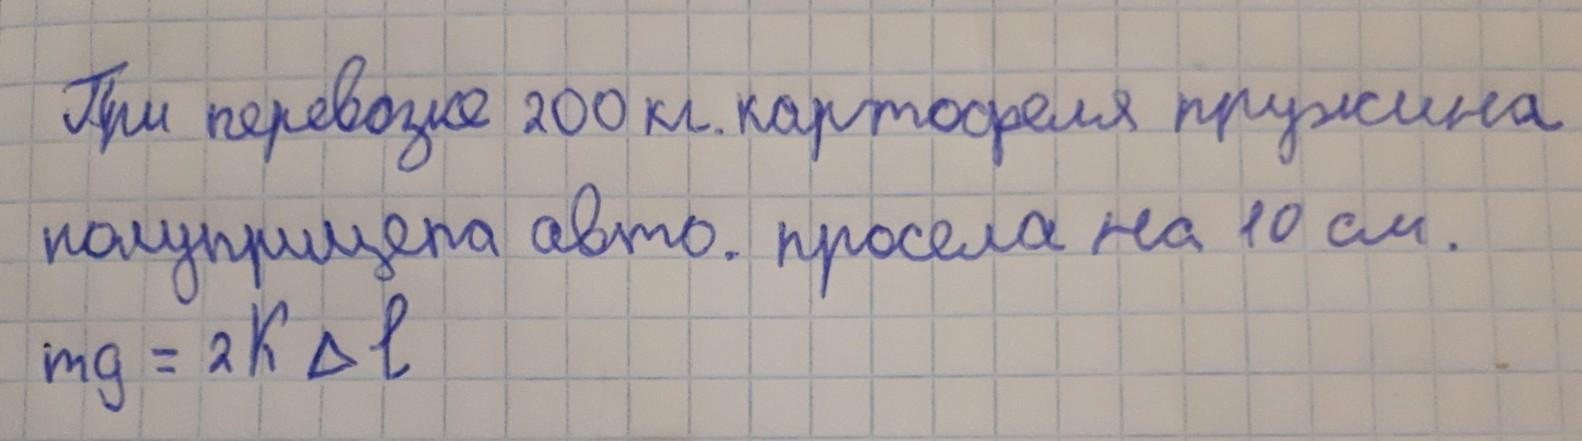 При перевозке 200 кг. картофеля пружина
полуприцепа авто. просела на 10 см.
mg = 2K Δ l